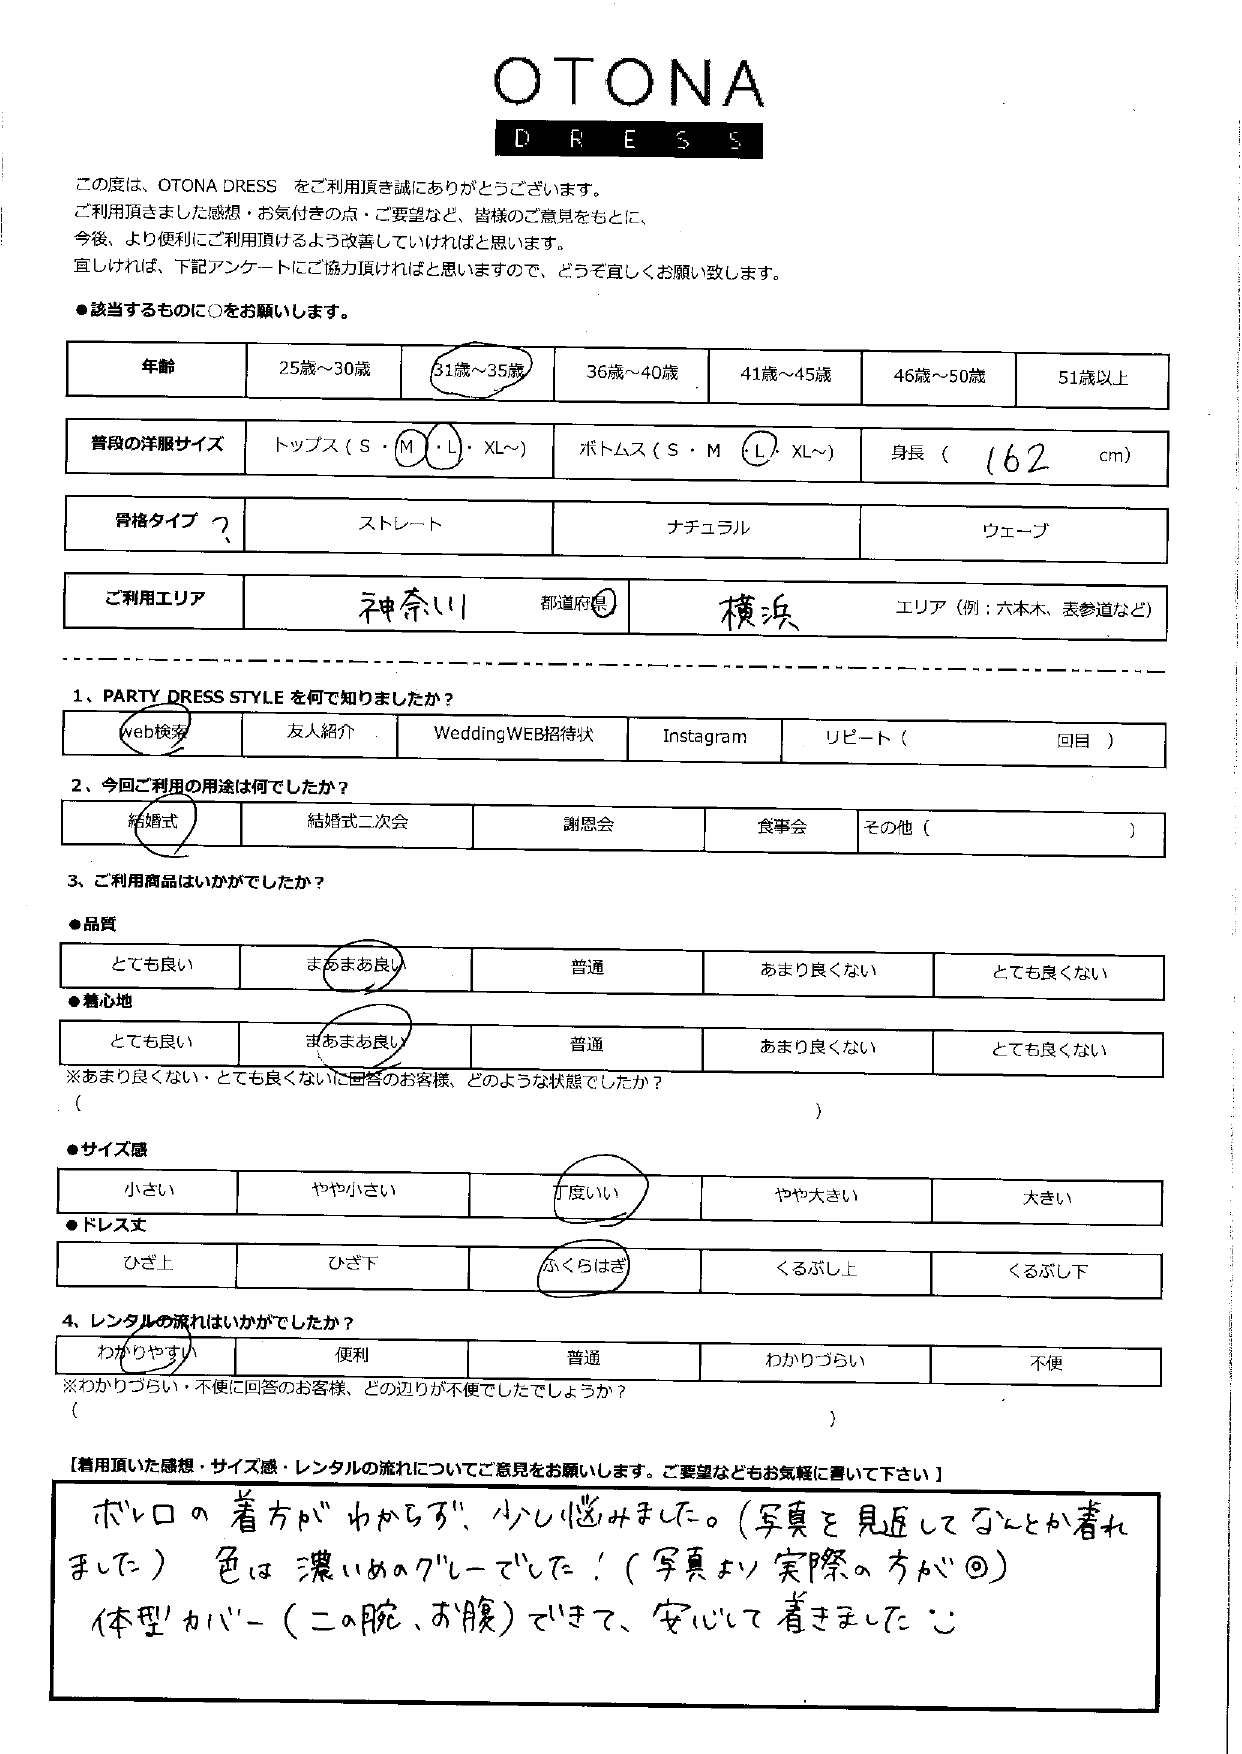 OTONA
DRESS
この度は、OTONA DRESS をご利用頂き誠にありがとうございます。
ご利用頂きました感想・お気付きの点・ご要望など、皆様のご意見をもとに、
今後、より便利にご利用頂けるよう改善していければと思います。
宜しければ、下記アンケートにご協力頂ければと思いますので、どうぞ宜しくお願い致します。
●該当するものに○をお願いします。
年齢 25歳～30歳 31歳～35歳 36歳～40歳 41歳～45歳 46歳～50歳 51歳以上
普段の洋服サイズ トップス（ S ・ M ・ L ・ XL～） ボトムス（ S ・ M ・ L ・ XL～） 身長（ 162 cm）
骨格タイプ ? ストレート ナチュラル ウェーブ
ご利用エリア 神奈川 都道府県 横浜 エリア（例：六本木、表参道など）
1、PARTY DRESS STYLE を何で知りましたか？
web検索 友人紹介 WeddingWEB招待状 Instagram リピート（ 回目 ）
2、今回ご利用の用途は何でしたか？
結婚式 結婚式二次会 謝恩会 食事会 その他（ ）
3、ご利用商品はいかがでしたか？
●品質
とても良い まあまあ良い 普通 あまり良くない とても良くない
●着心地
とても良い まあまあ良い 普通 あまり良くない とても良くない
※あまり良くない・とても良くないに回答のお客様、どのような状態でしたか？
（ ）
●サイズ感
小さい やや小さい 丁度いい やや大きい 大きい
●ドレス丈
ひざ上 ひざ下 ふくらはぎ くるぶし上 くるぶし下
4、レンタルの流れはいかがでしたか？
わかりやすい 便利 普通 わかりづらい 不便
※わかりづらい・不便に回答のお客様、どの辺りが不便でしたでしょうか？
（ ）
【着用頂いた感想・サイズ感・レンタルの流れについてご意見をお願いします。ご要望などもお気軽に書いて下さい】
ボレロの着方がわからず、少し悩みました。（写真を見返してなんとか着れ
ました） 色は濃いめのグレーでした！（写真より実際の方が◎）
体型カバー（二の腕、お腹）できて、安心して着きました